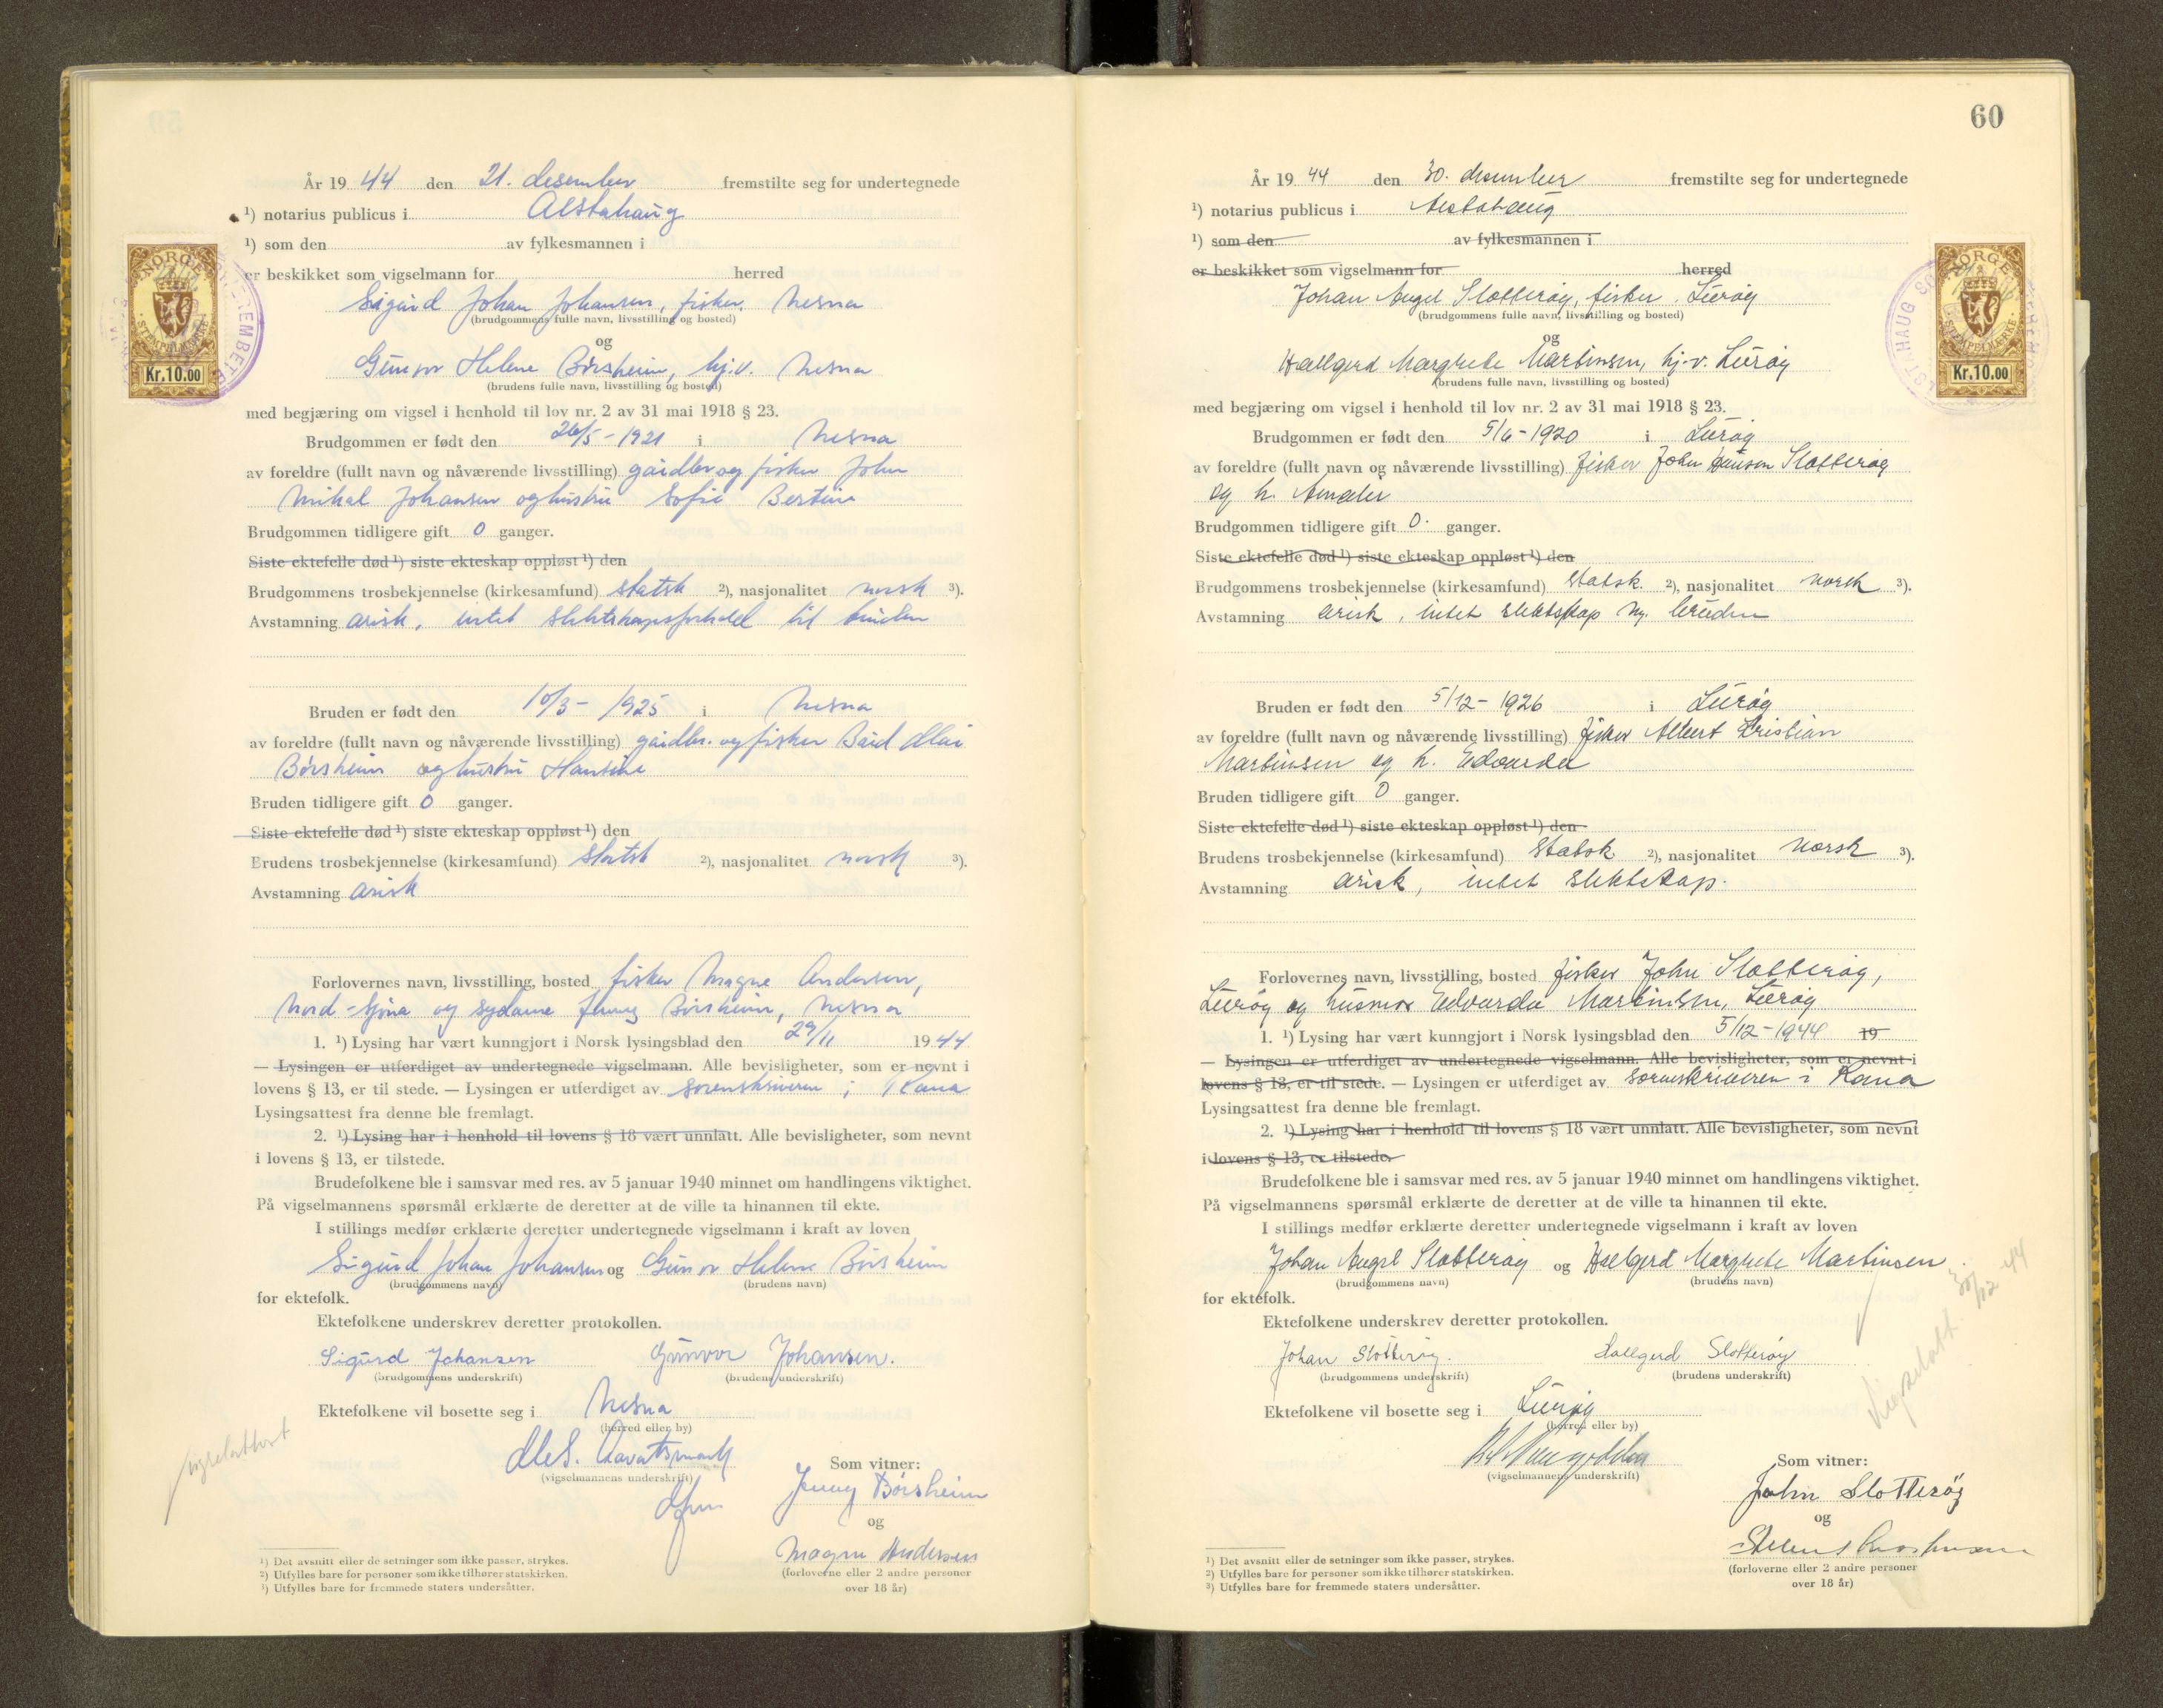 År 1944 den 21. desember fremstilte seg for undertegnede
¹) notarius publicus i Alstahaug
¹) som den av fylkesmannen i
er beskikket som vigselmann for herred
Sigurd Johan Johansen, fisker, Nesna
(brudgommens fulle navn, livsstilling og bosted)
og
Gunvor Helene Børsheim, hj.v. Nesna
(brudens fulle navn, livsstilling og bosted)
med begjæring om vigsel i henhold til lov nr. 2 av 31 mai 1918 § 23.
Brudgommen er født den 26/5-1921 i Nesna
av foreldre (fullt navn og nåværende livsstilling) gårdbr og fisker John
Mikal Johansen og hustru Sofie Bertine
Brudgommen tidligere gift 0 ganger.
Siste ektefelle død ¹) siste ekteskap oppløst ¹) den
Brudgommens trosbekjennelse (kirkesamfund) statsk ²), nasjonalitet norsk ³).
Avstamning arisk, intet slektskapsforhold til bruden
Bruden er født den 10/3-1925 i Nesna
av foreldre (fullt navn og nåværende livsstilling) gårdbr. og fisker Bård
Børsheim og hustru
Bruden tidligere gift 0 ganger.
Siste ektefelle død ¹) siste ekteskap oppløst ¹) den
Brudens trosbekjennelse (kirkesamfund) statsk ²), nasjonalitet norsk ³).
Avstamning arisk
Forlovernes navn, livsstilling, bosted fisker Magne Andersen,
Nord-Sjona og sydame Jenny Børsheim, Nesna
1. ¹) Lysing har vært kunngjort i Norsk lysingsblad den 29/11 1944
— Lysingen er utferdiget av undertegnede vigselmann. Alle bevisligheter, som er nevnt i
lovens § 13, er til stede. — Lysingen er utferdiget av sorenskriveren i Rana
Lysingsattest fra denne ble fremlagt.
2. ¹) Lysing har i henhold til lovens § 18 vært unnlatt. Alle bevisligheter, som nevnt
i lovens § 13, er tilstede.
Brudefolkene ble i samsvar med res. av 5 januar 1940 minnet om handlingens viktighet.
På vigselmannens spørsmål erklærte de deretter at de ville ta hinannen til ekte.
I stillings medfør erklærte deretter undertegnede vigselmann i kraft av loven
Sigurd Johan Johansen og Gunvor Helene Børsheim
(brudgommens navn) (brudens navn)
for ektefolk.
Ektefolkene underskrev deretter protokollen.
Sigurd Johansen Gunvor Johansen.
(brudgommens underskrift) (brudens underskrift)
Ektefolkene vil bosette seg i Nesna
(herred eller by)
(vigselmannens underskrift)
Som vitner:
Jenny Børsheim
og
Magne Andersen
(forloverne eller 2 andre personer
over 18 år)
vigselattest
¹) Det avsnitt eller de setninger som ikke passer, strykes.
²) Utfylles bare for personer som ikke tilhører statskirken.
¹) Utfylles bare for fremmede staters undersåtter.
NORGE
STEMPELMERKE
Kr. 10.00
60
År 1944 den 30. desember fremstilte seg for undertegnede
¹) notarius publicus i Alstahaug
¹) som den av fylkesmannen i
er beskikket som vigselmann for herred
Johan Angel Slotterøy, fisker, Lurøy
(brudgommens fulle navn, livsstilling og bosted)
og
Hallgerd Margrete Martinsen, hj.v. Lurøy
(brudens fulle navn, livsstilling og bosted)
med begjæring om vigsel i henhold til lov nr. 2 av 31 mai 1918 § 23.
Brudgommen er født den 5/6-1920 i Lurøy
av foreldre (fullt navn og nåværende livsstilling) fisker John Jensen Slotterøy
og h. Amalie
Brudgommen tidligere gift 0. ganger.
Siste ektefelle død ¹) siste ekteskap oppløst ¹) den
Brudgommens trosbekjennelse (kirkesamfund) statsk. ²), nasjonalitet norsk ³).
Avstamning arisk, intet slektskap m. bruden
Bruden er født den 5/12-1926 i Lurøy
av foreldre (fullt navn og nåværende livsstilling) fisker Albert Kristian
Martinsen og h. Edvarda
Bruden tidligere gift 0 ganger.
Siste ektefelle død ¹) siste ekteskap oppløst ¹) den
Brudens trosbekjennelse (kirkesamfund) statsk ²), nasjonalitet norsk ³).
Avstamning arisk, intet slektskap.
Forlovernes navn, livsstilling, bosted fisker John Slotterøy,
Lurøy og husmor Edvarda Martinsen, Lurøy
1. ¹) Lysing har vært kunngjort i Norsk lysingsblad den 5/12-1944 19
— Lysingen er utferdiget av undertegnede vigselmann. Alle bevisligheter, som er nevnt i
lovens § 13, er til stede. — Lysingen er utferdiget av sorenskriveren i Rana
Lysingsattest fra denne ble fremlagt.
2. ¹) Lysing har i henhold til lovens § 18 vært unnlatt. Alle bevisligheter, som nevnt
i lovens § 13, er tilstede.
Brudefolkene ble i samsvar med res. av 5 januar 1940 minnet om handlingens viktighet.
På vigselmannens spørsmål erklærte de deretter at de ville ta hinannen til ekte.
I stillings medfør erklærte deretter undertegnede vigselmann i kraft av loven
Johan Angel Slotterøy og Hallgerd Margrete Martinsen
(brudgommens navn) (brudens navn)
for ektefolk.
Ektefolkene underskrev deretter protokollen.
Johan Slotterøy. Hallgerd Slotterøy
(brudgommens underskrift) (brudens underskrift)
Ektefolkene vil bosette seg i Lurøy
(herred eller by)
(vigselmannens underskrift)
Som vitner:
John Slotterøy
og
(forloverne eller 2 andre personer
over 18 år)
30/12 44
¹) Det avsnitt eller de setninger som ikke passer, strykes.
²) Utfylles bare for personer som ikke tilhører statskirken.
³) Utfylles bare for fremmede staters undersåtter.
NORGE
STEMPELMERKE
Kr. 10.00